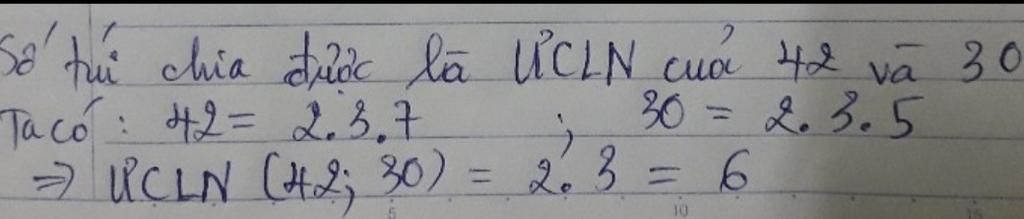 Số túi chia được là ƯCLN của 42 và 30
Ta có: 42 = 2.3.7 ; 30 = 2.3.5
⇒ ƯCLN (42; 30) = 2.3 = 6
5 10 15